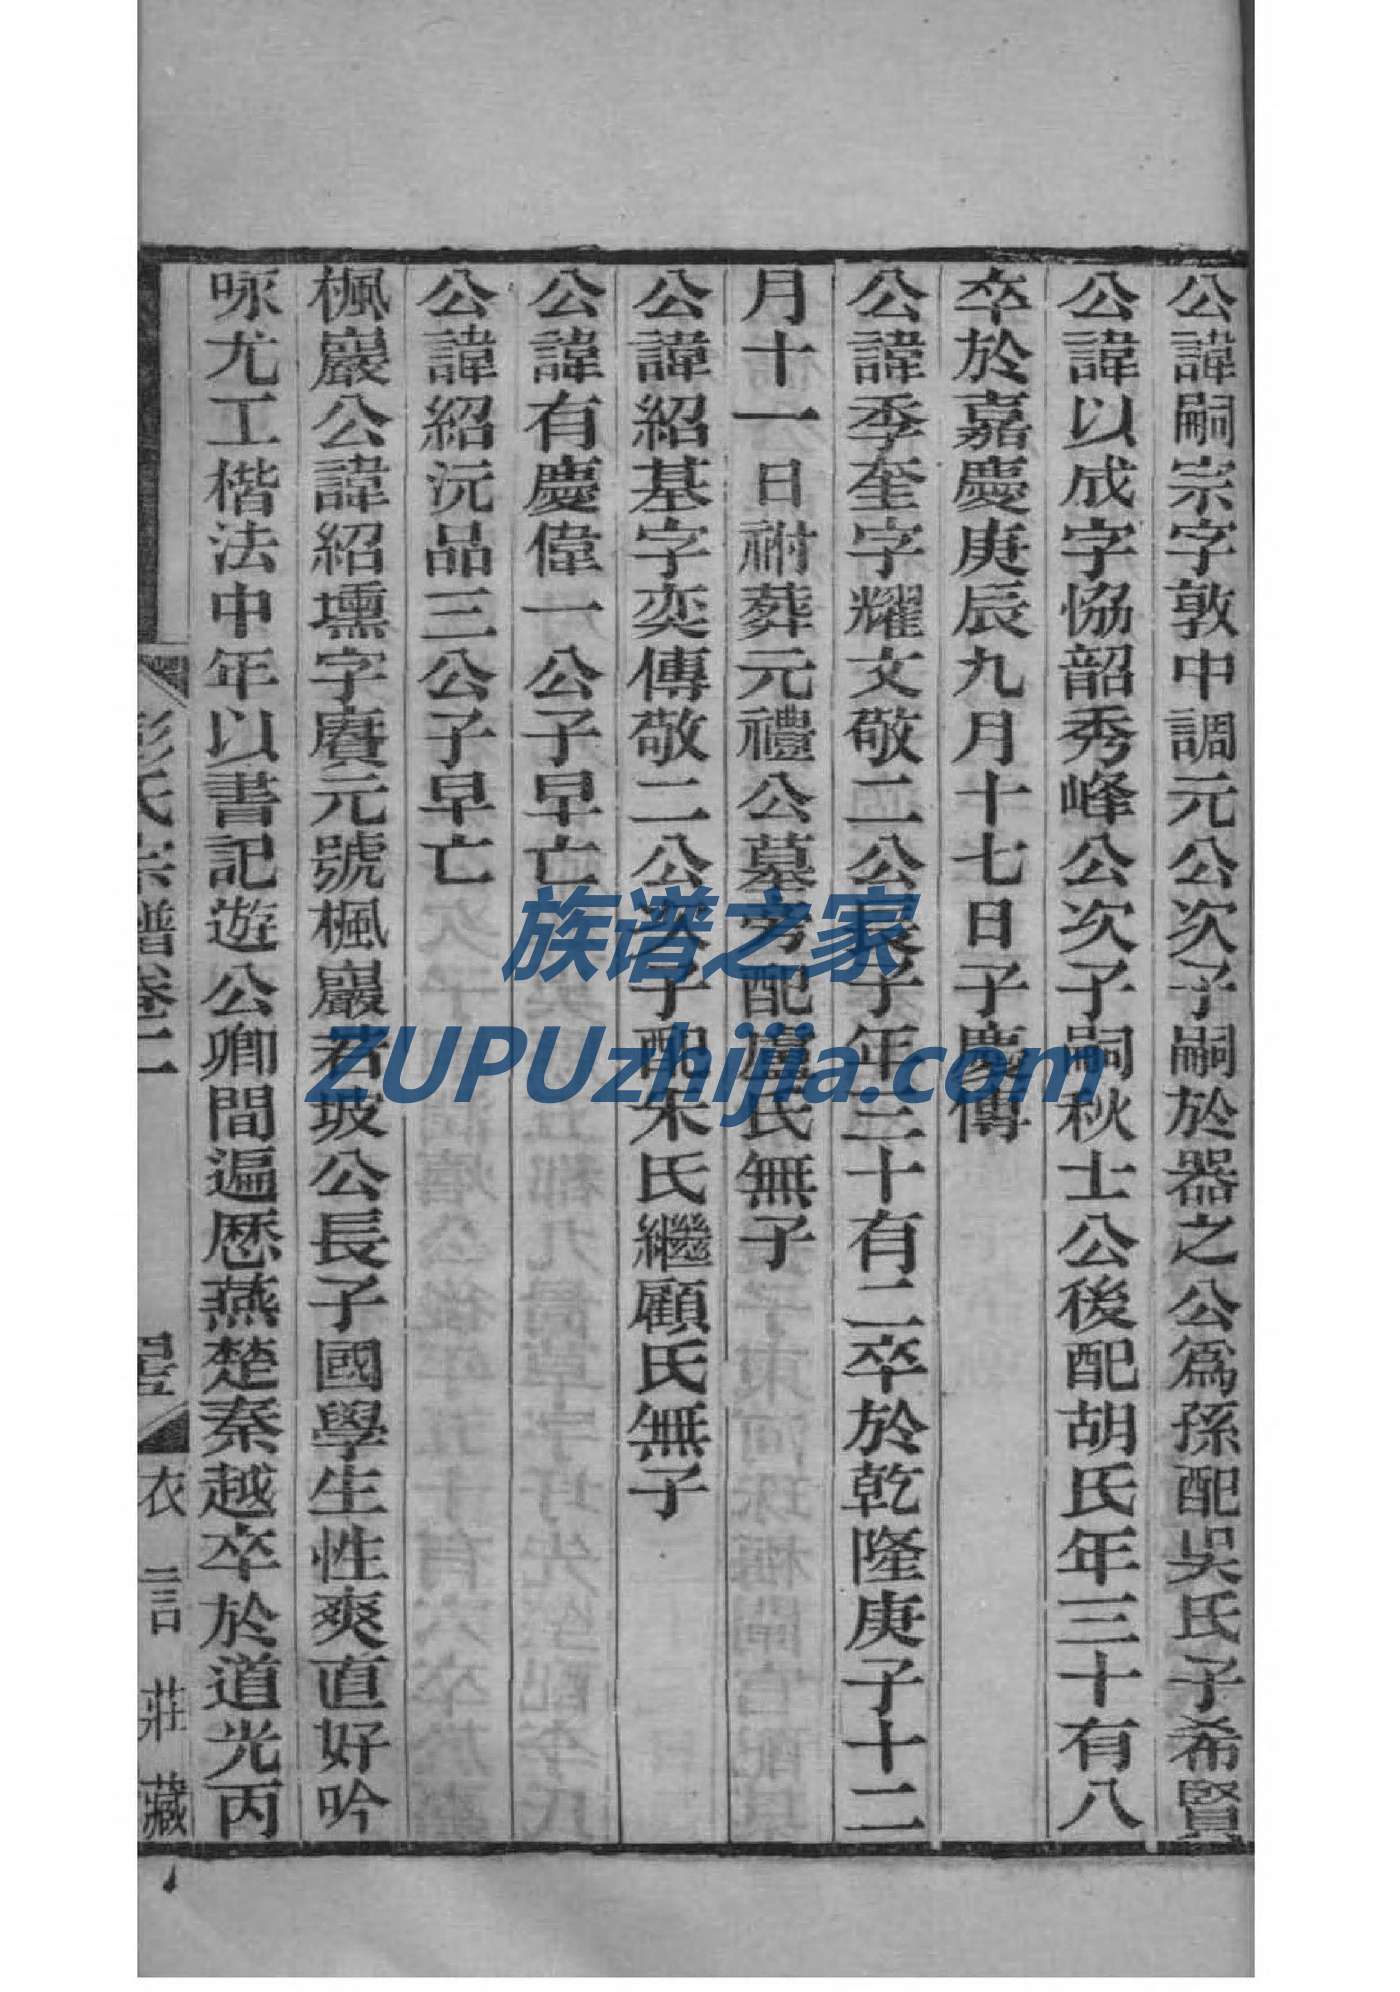 公諱嗣宗字敦中調元公次子嗣於器之公爲孫配吳氏子希賢
公諱以成字協韶秀峰公次子嗣秋士公後配胡氏年三十有八
卒於嘉慶庚辰九月十七日子慶傳
公諱季奎字耀文敬二公長子年三十有二卒於乾隆庚子十二
月十一日祔葬元禮公墓旁配盧氏無子
公諱紹基字奕傳敬二公次子配朱氏繼顧氏無子
公諱有慶偉一公子早亡
公諱紹沅品三公子早亡
楓巖公諱紹壎字賡元號楓巖若坡公長子國學生性爽直好吟
咏尤工楷法中年以書記遊公卿間遍歷燕楚秦越卒於道光丙
彭氏宗譜卷二
衣言莊藏
族谱之家
ZUPUzhijia.com